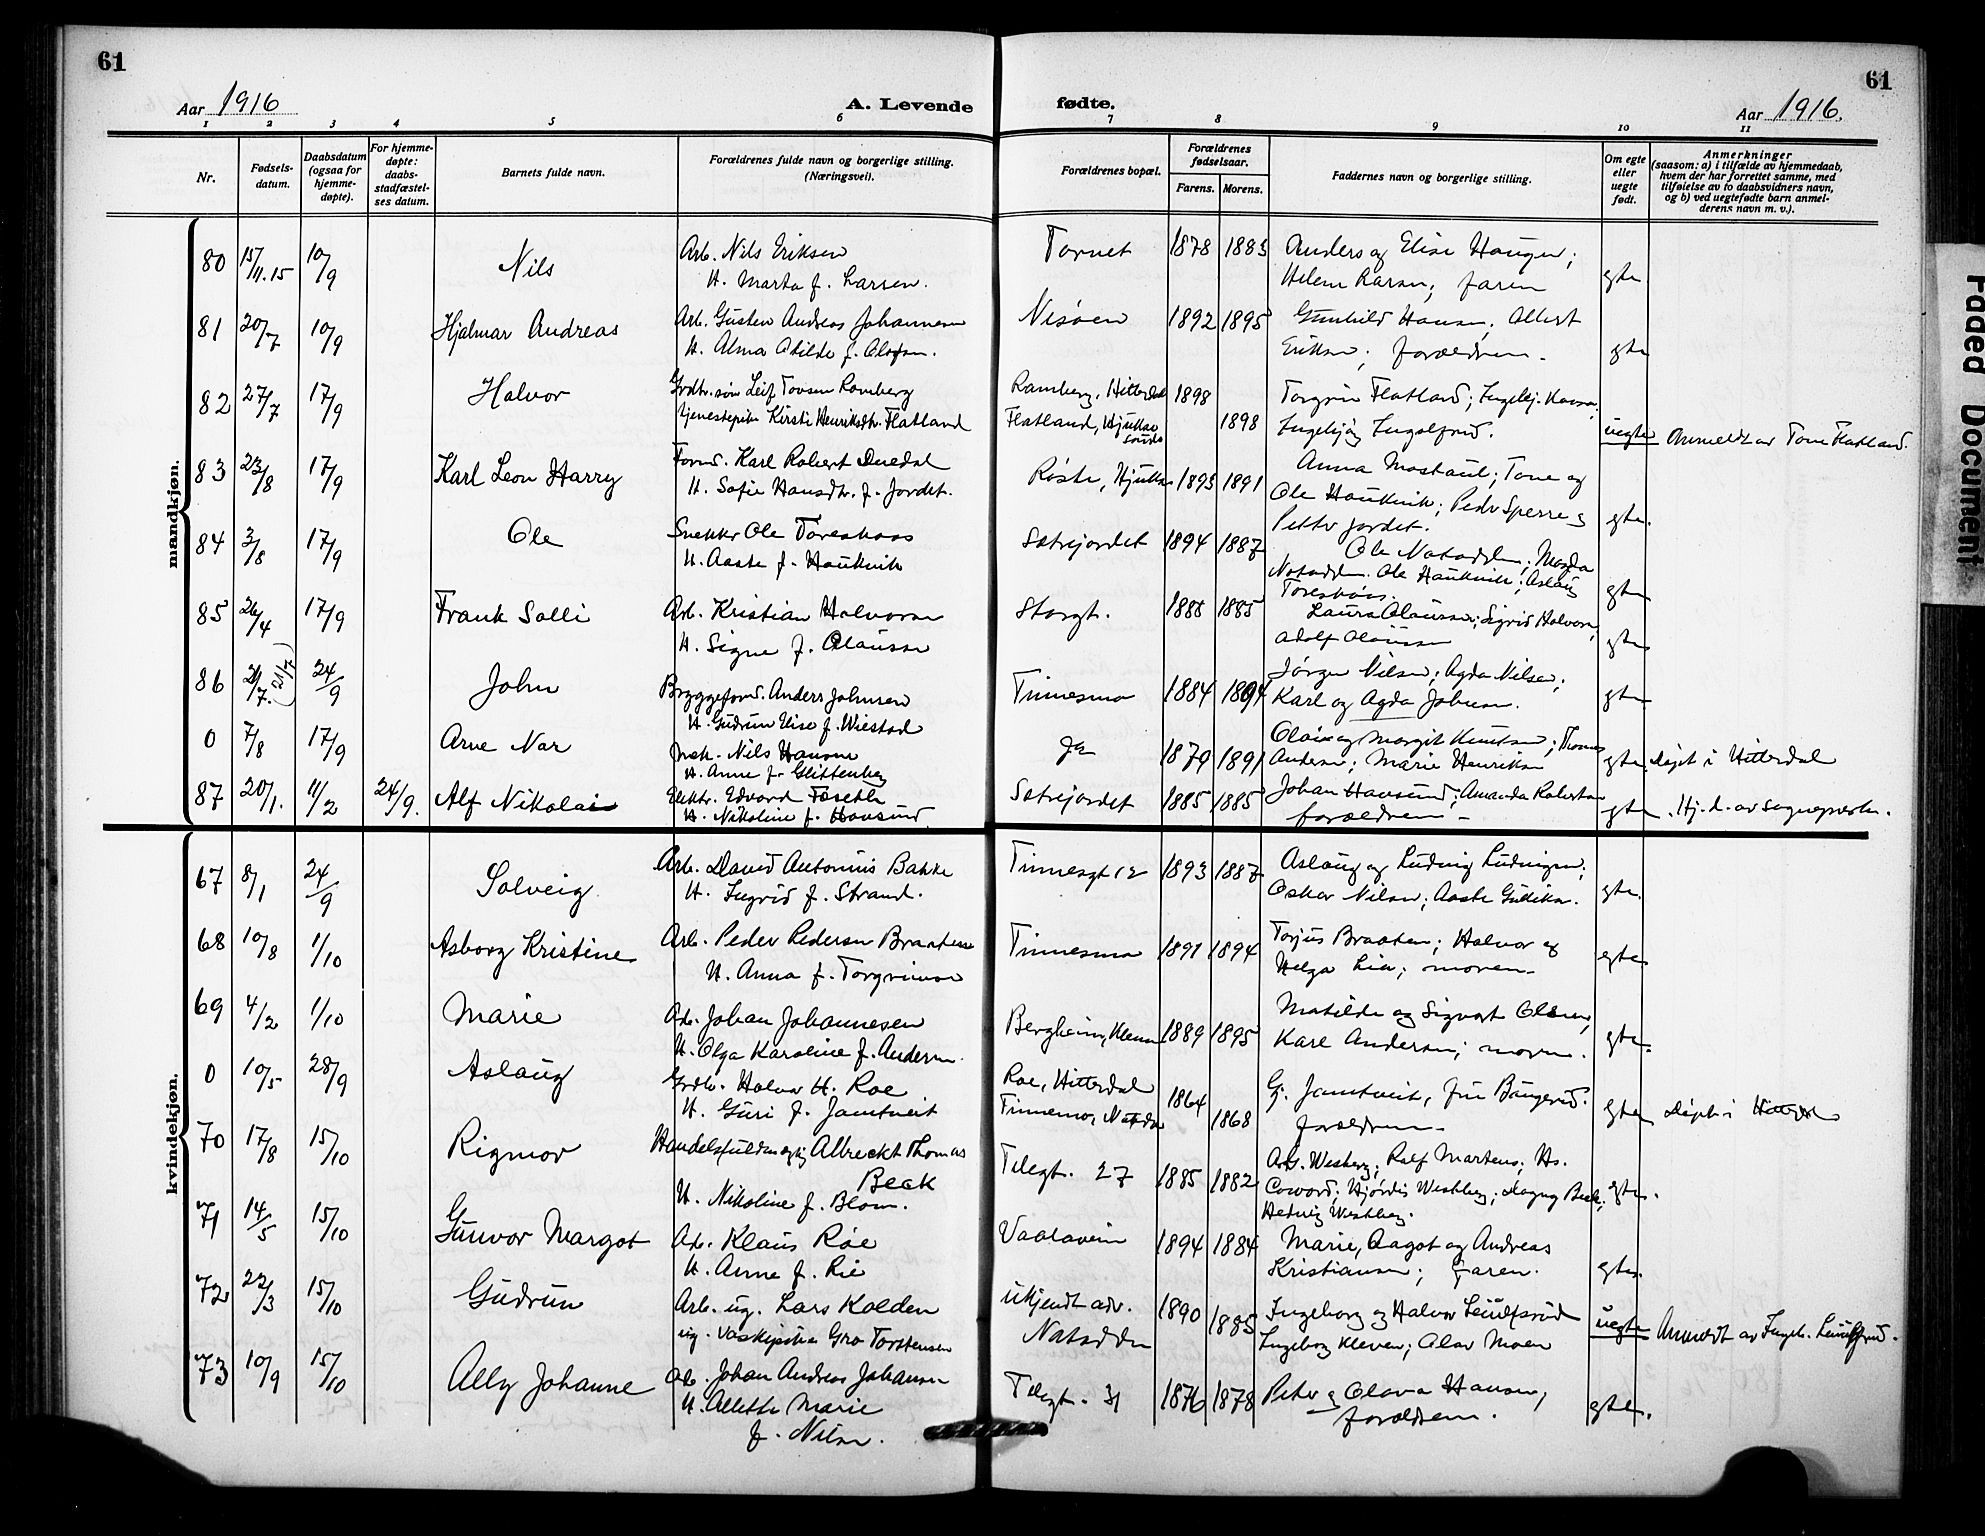 61
61
Aar 1916
A. Levende
fødte.
Aar 1916.
1 2 3 4 5 6 7 8 9 10 11
Nr.
Fødsels-
datum.
Daabsdatum
(ogsaa for
hjemme-
døpte).
For hjemme-
døpte:
daabs-
stadfæstel-
ses datum.
Barnets fulde navn.
Forældrenes fulde navn og borgerlige stilling.
(Næringsvei).
Forældrenes bopæl.
Forældrenes
fødselsaar.
Farens. Morens.
Faddernes navn og borgerlige stilling.
Om egte
eller
uegte
født.
Anmerkninger
(saasom: a) i tilfælde av hjemmedaab,
hvem der har forrettet samme, med
tilføielse av to daabsvidners navn,
og b) ved uegtefødte barn anmel-
derens navn m. v.).
mandkjøn.
80 15/11.15 10/9 Nils Arb. Nils Eriksen Tornet 1878 1883 Anders og Elise Haugen;
H. Marta f. Larsen. Helene Larsen; faren egte
81 20/7 10/9 Hjalmar Andreas Arb. Gusten Andreas Johannesen Nisøen 1892 1895 Gunhild Hansen; Albert
H. Alma Otilde f. Olofsen. Eriksen; forældrene. egte
82 27/7 17/9 Halvor Grdbr.søn Leif Tovsen Ramberg Ramberg, Hitterdal 1898 Torgrim Flatland; Ingebj. Hansen;
tjenestepike Kirsti Henriksdtr. Flatland Flatland, Hjuksesunde 1898 Ingebjørg Ingolfsrud. uegte Anmeldt av Tone Flatland.
83 23/8 17/9 Karl Leon Harry Formd. Karl Robert Røste, Hjuksø 1893 1891 Anna Mostaul; Tone og
H. Sofie Hansdtr. f. Jordet. Ole Haukvik; Peder Sperre og
Petter Jordet. egte.
84 3/8 17/9 Ole Snekker Ole Toreshaas Sætrejordet 1894 1887 Ole Notodden; Magda
H. Aaste f. Haukvik Notodden. Ole Haukvik; Aslaug
Toreshaas. egte
85 26/4 17/9 Frank Solli Arb. Kristian Halvorsen Storgt. 1888 1885 Laura Olaussen; Sigrid Halvorsen;
H. Signe f. Olaussen Adolf Olaussen egte
86 21/7. (21/7) 24/9 John Bryggeformd. Anders Johnsen Tinnesmo 1884 1894 Jørgen Nilsen; Agda Nilsen;
H. Gudrun Elise f. Wiestad Karl og Agda Johnsen. egte
0 7/8 17/9 Arne Nar Insk. Nils Hansen 1879 1891 Olai og Margit Knutsen; Thomas
H. Anne f. Glittenberg Andersen; Marie Henriksen egte. døpt i Hitterdal
87 20/1. 11/2 24/9. Alf Nikolai Elektr. Edvard Fæseth Sætrejordet 1885 1885 Johan Hansund; Amanda Robertsen
H. Nikoline f. Hansund forældrene - egte. Hj. d. av sognepresten.
kvindekjøn.
67 8/1 24/9 Solveig Arb. David Antonius Bakke Tinnesgt 12 1893 1887 Aslaug og Ludvig Ludvigsen;
H. Ingrid f. Strand. Oskar Nilsen; Aaste Gulliksen. egte.
68 10/8 1/10 Asborg Kristine Arb. Peder Pedersen Braatene Tinnesmo 1891 1894 Torjus Braaten; Halvor og
H. Anna f. Torgrimsen Helga Lia; moren egte
69 4/2 1/10 Marie Arb. Johan Johannesen Bergheim, Kleven 1889 1895 Matilde og Sigvart Olsen;
H. Olga Karoline f. Andersen. Karl Andersen; moren. egte.
0 10/5 28/9 Aslaug Grdbr. Halvor H. Roe Roe, Hitterdal 1864 G. Jamtveit, fru Bingerud.
H. Guri f. Jamtveit Tinnemo, Notodden 1868 forældrene egte døpt i Hitterdal
70 17/8 15/10 Rigmor Handelsfuldmægtig Albreckt Thomas Beck Telegt. 27 1885 1882 Westberg; Rolf Martens; Hs.
H. Nikoline f. Blom. Coward; Hjørdis Westberg; Dagny Beck;
Hedvig Westberg. egte.
71 14/5 15/10 Gunvor Margot Arb. Klaus Røe Vaalavein 1894 1884 Marie, Aagot og Andreas
H. Anne f. Lie Kristiansen; faren. egte.
72 22/3 15/10 Gudrun Arb. ug. Lars Kolden ukjendt adr. 1890 Ingeborg og Halvor Leiulfsrud
ug. vaskepike Gro Torstensen Notodden 1885 Ingeborg Kleven; Olav Moen uegte Anmeldt av Ingeb. Leiulfsrud.
73 10/9 15/10 Ally Johanne Arb. Johan Andreas Johansen Telegt. 31 1876 1878 Peter og Olava Hansen,
H. Allette Marie forældrene. egte.
f. Nilsen.
Faded Document